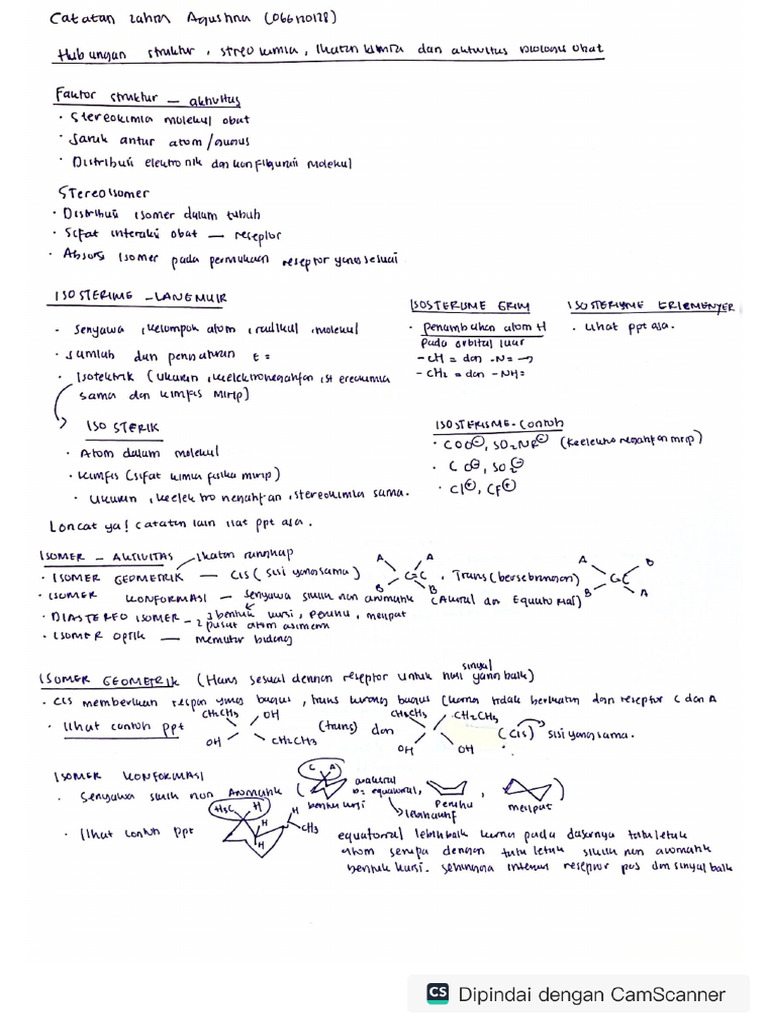 Catatan Zahra Agustina (066120128)
Hubungan struktur, streokimia, Ikatan kimia dan aktivitas biologi obat
Faktor struktur – aktivitas
• Stereokimia molekul obat
• Jarak antar atom/gugus
• Distribusi elektronik dan konfigurasi molekul
Stereoisomer
• Distribusi isomer dalam tubuh
• Sifat interaksi obat – reseptor
• Absorsi Isomer pada permukaan reseptor yang sesuai
ISOSTERISME – LANGMUIR
- Senyawa, kelompok atom, radikal, molekul
• Jumlah dan pengaturan e =
• Isotektrik (ukuran, keelektronegatifan, stereokimia
sama dan kimfis mirip)
ISOSTERIK
• Atom dalam molekul
• Kimfis (sifat kimia fisika mirip)
• Ukuran, keelektronegatifan, stereokimia sama.
Loncat ya! Catatan lain liat ppt aja.
ISOSTERISME GRIM
• Penambahan atom H
pada orbital luar
- CH = dan -N= →
- CH2 = dan - NH=
ISOSTERISME ERLEMENYER
• Lihat ppt aja.
ISOSTERISME - Contoh
• COO⊖, SO2NR⊖ (keelektronegatifan mirip)
• CO⊖, SO2⊖
• Cl⊕, CF⊕
ISOMER – AKTIVITAS Ikatan rangkap
• ISOMER GEOMETRIK – CIS (sisi yang sama) A A C=C B B, Trans (bersebrangan) A B C=C B A
• ISOMER KONFORMASI – senyawa siklik non aromatik (Aksial dan Equatorial)
• DIASTEREO ISOMER – 3 bentuk kursi, perahu, melipat
2 pusat atom asimetri
• ISOMER OPTIK – memutar bidang
ISOMER GEOMETRIK (Harus sesuai dengan reseptor untuk hasil sinyal yang baik)
• CIS memberikan respon yang bagus, trans kurang bagus (karna tidak berikatan dgn reseptor C dan A
• Lihat contoh ppt CH2CH3 OH OH CH2CH3 (trans) dan CH2CH3 CH2CH3 OH OH (cis) sisi yang sama.
ISOMER KONFORMASI
• Senyawa siklik non Aromatik ( C A a=aksial b= equatorial, bentuk kursi → lebih aktif, Perahu, melipat )
• Lihat contoh ppt H3C H H H H CH3
equatorial lebih baik karna pada dasarnya tata letak
atom serupa dengan tata letak siklik non aromatik
bentuk kursi. Sehingga interaksi reseptor pas dan sinyal baik
CS Dipindai dengan CamScanner